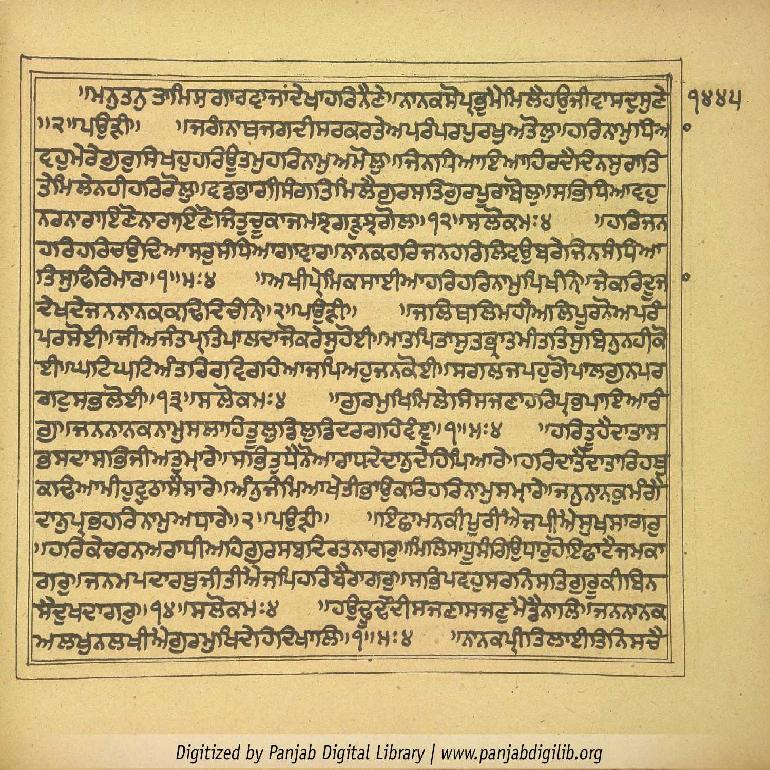 ॥ਮਨੁਤਨੁਤਾਮਿਸਗਾਰਵਾਜਾਂਦੇਖਾਹਰਿਨੈਣੇ॥ਨਾਨਕਸੋਪ੍ਰਭੁਮੈਮਿਲੈਹਉਜੀਵਾਸਦੁਸੁਣੇ
੧੪੪੫
॥੨॥ਪਉੜੀ॥ ॥ਜਗੰਨਾਥਜਗਦੀਸਰਕਰਤੇਅਪਰੰਪਰਪੁਰਖੁਅਤੋਲੁ॥ਹਰਿਨਾਮੁਧਿਆ
ਵਹੁਮੇਰੇਗੁਰਸਿਖਹੁਹਰਿਊਤਮੁਹਰਿਨਾਮੁਅਮੋਲੁ॥ਜਿਨਧਿਆਇਆਹਿਰਦੈਦਿਨਸੁਰਾਤਿ
ਤੇਮਿਲੇਨਹੀਹਰਿਰੋਲੁ॥ਵਡਭਾਗੀਸੰਗਤਿਮਿਲੈਗੁਰਸਤਿਗੁਰਪੂਰਾਬੋਲੁ॥ਸਭਿਧਿਆਵਹੁ
ਨਰਨਾਰਾਇਣੋਨਾਰਾਇਣੋਜਿਤੁਚੂਕਾਜਮਝਗੜੁਝਗੋਲੁ॥੧੨॥ਸਲੋਕਮਃ੪ ॥ਹਰਿਜਨ
ਹਰਿਹਰਿਚਉਦਿਆਸਰੁਸੰਧਿਆਗਾਵਾਰ॥ਨਾਨਕਹਰਿਜਨਹਰਿਲਿਵਉਬਰੇਜਿਨਸੰਧਿਆ
ਤਿਸੁਫਿਰਿਮਾਰ॥੧॥ਮਃ੪ ॥ਅਖੀਪ੍ਰੇਮਿਕਸਾਈਆਹਰਿਹਰਿਨਾਮੁਪਿਖੰਨਿ॥ਜੇਕਰਿਦੂਜਾ
ਦੇਖਦੇਜਨਨਾਨਕਕਢਿਦਿਚੰਨਿ॥੨॥ਪਉੜੀ॥ ॥ਜਲਿਥਲਿਮਹੀਅਲਿਪੂਰਨੋਅਪਰੰ
ਪਰਸੋਈ॥ਜੀਅਜੰਤਪ੍ਰਤਿਪਾਲਦਾਜੋਕਰੇਸੁਹੋਈ॥ਮਾਤਪਿਤਾਸੁਤਭ੍ਰਾਤਮੀਤਤਿਸੁਬਿਨੁਨਹੀਕੋ
ਈ॥ਘਟਿਘਟਿਅੰਤਰਿਰਵਿਰਹਿਆਜਪਿਅਹੁਜਨਕੋਈ॥ਸਗਲਜਪਹੁਗੋਪਾਲਗੁਨਪਰ
ਗਟੁਸਭਲੋਈ॥੧੩॥ਸਲੋਕਮਃ੪ ॥ਗੁਰਮੁਖਿਮਿਲੇਸਿਸਜਣਾਹਰਿਪ੍ਰਭਪਾਇਆਰੰ
ਗੁ॥ਜਨਨਾਨਕਨਾਮੁਸਲਾਹਿਤੂਲੁਡਿਲੁਡਿਦਰਗਹਿਵੰਞੁ॥੧॥ਮਃ੪ ॥ਹਰਿਤੂਹੈਦਾਤਾਸ
ਭਸਦਾਸਭਿਜੀਅਤੁਮ੍ਹਾਰੇ॥ਸਭਿਤੁਧੈਨੋਆਰਾਧਦੇਦਾਨੁਦੇਹਿਪਿਆਰੇ॥ਹਰਿਦਾਤੈਦਾਤਾਰਿਹਥੁ
ਕਢਿਆਮੀਹੁਵੁਠਾਸੈਸਾਰੇ॥ਅੰਨੁਜੰਮਿਆਖੇਤੀਭਾਉਕਰਿਹਰਿਨਾਮੁਸਮ੍ਹਾਰੇ॥ਜਨੁਨਾਨਕੁਮੰਗੈ
ਦਾਨੁਪ੍ਰਭਹਰਿਨਾਮੁਅਧਾਰੇ॥੨॥ਪਉੜੀ॥ ॥ਇਛਾਮਨਕੀਪੂਰੀਐਜਪੀਐਸੁਖਸਾਗਰੁ
॥ਹਰਿਕੇਚਰਨਅਰਾਧੀਅਹਿਗੁਰਸਬਦਿਰਤਨਾਗਰੁ॥ਮਿਲਿਸਾਧੂਸੰਗਿਉਧਾਰੁਹੋਇਫਾਟੈਜਮਕਾ
ਗਰੁ॥ਜਨਮਪਦਾਰਥੁਜੀਤੀਐਜਪਿਹਰਿਬੈਰਾਗਰੁ॥ਸਭਿਪਵਹੁਸਰਨਿਸਤਿਗੁਰੂਕੀਬਿਨ
ਸੈਦੁਖਦਾਗਰੁ॥੧੪॥ਸਲੋਕਮਃ੪ ॥ਹਉਢੂੰਢੇਂਦੀਸਜਣਾਸਜਣੁਮੈਡੈਨਾਲਿ॥ਜਨਨਾਨਕ
ਅਲਖੁਨਲਖੀਐਗੁਰਮੁਖਿਦੇਹਿਦਿਖਾਲਿ॥੧॥ਮਃ੪ ॥ਨਾਨਕਪ੍ਰੀਤਿਲਾਈਤਿਨਿਸਚੈ
Digitized by Panjab Digital Library | www.panjabdigilib.org